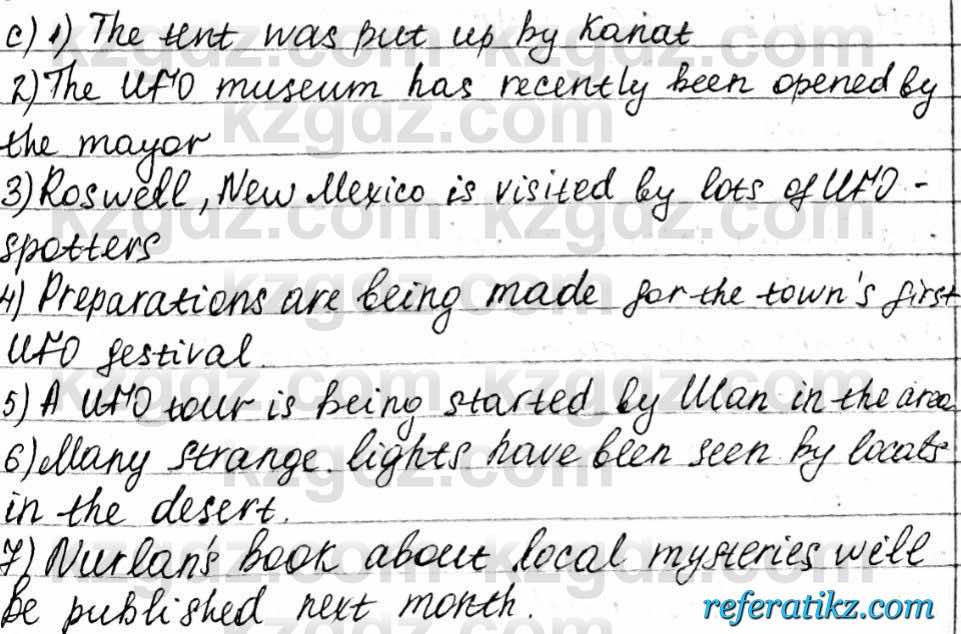 c) 1) The tent was put up by Kanat
2) The UFO museum has recently been opened by
the mayor
3) Roswell, New Mexico is visited by lots of UFO -
spotters
4) Preparations are being made for the town's first
UFO festival.
5) A UFO tour is being started by Ulan in the area
6) Many strange lights have been seen by locals
in the desert.
7) Nurlan's book about local mysteries will
be published next month.
referatikz.com
kzgdz.com